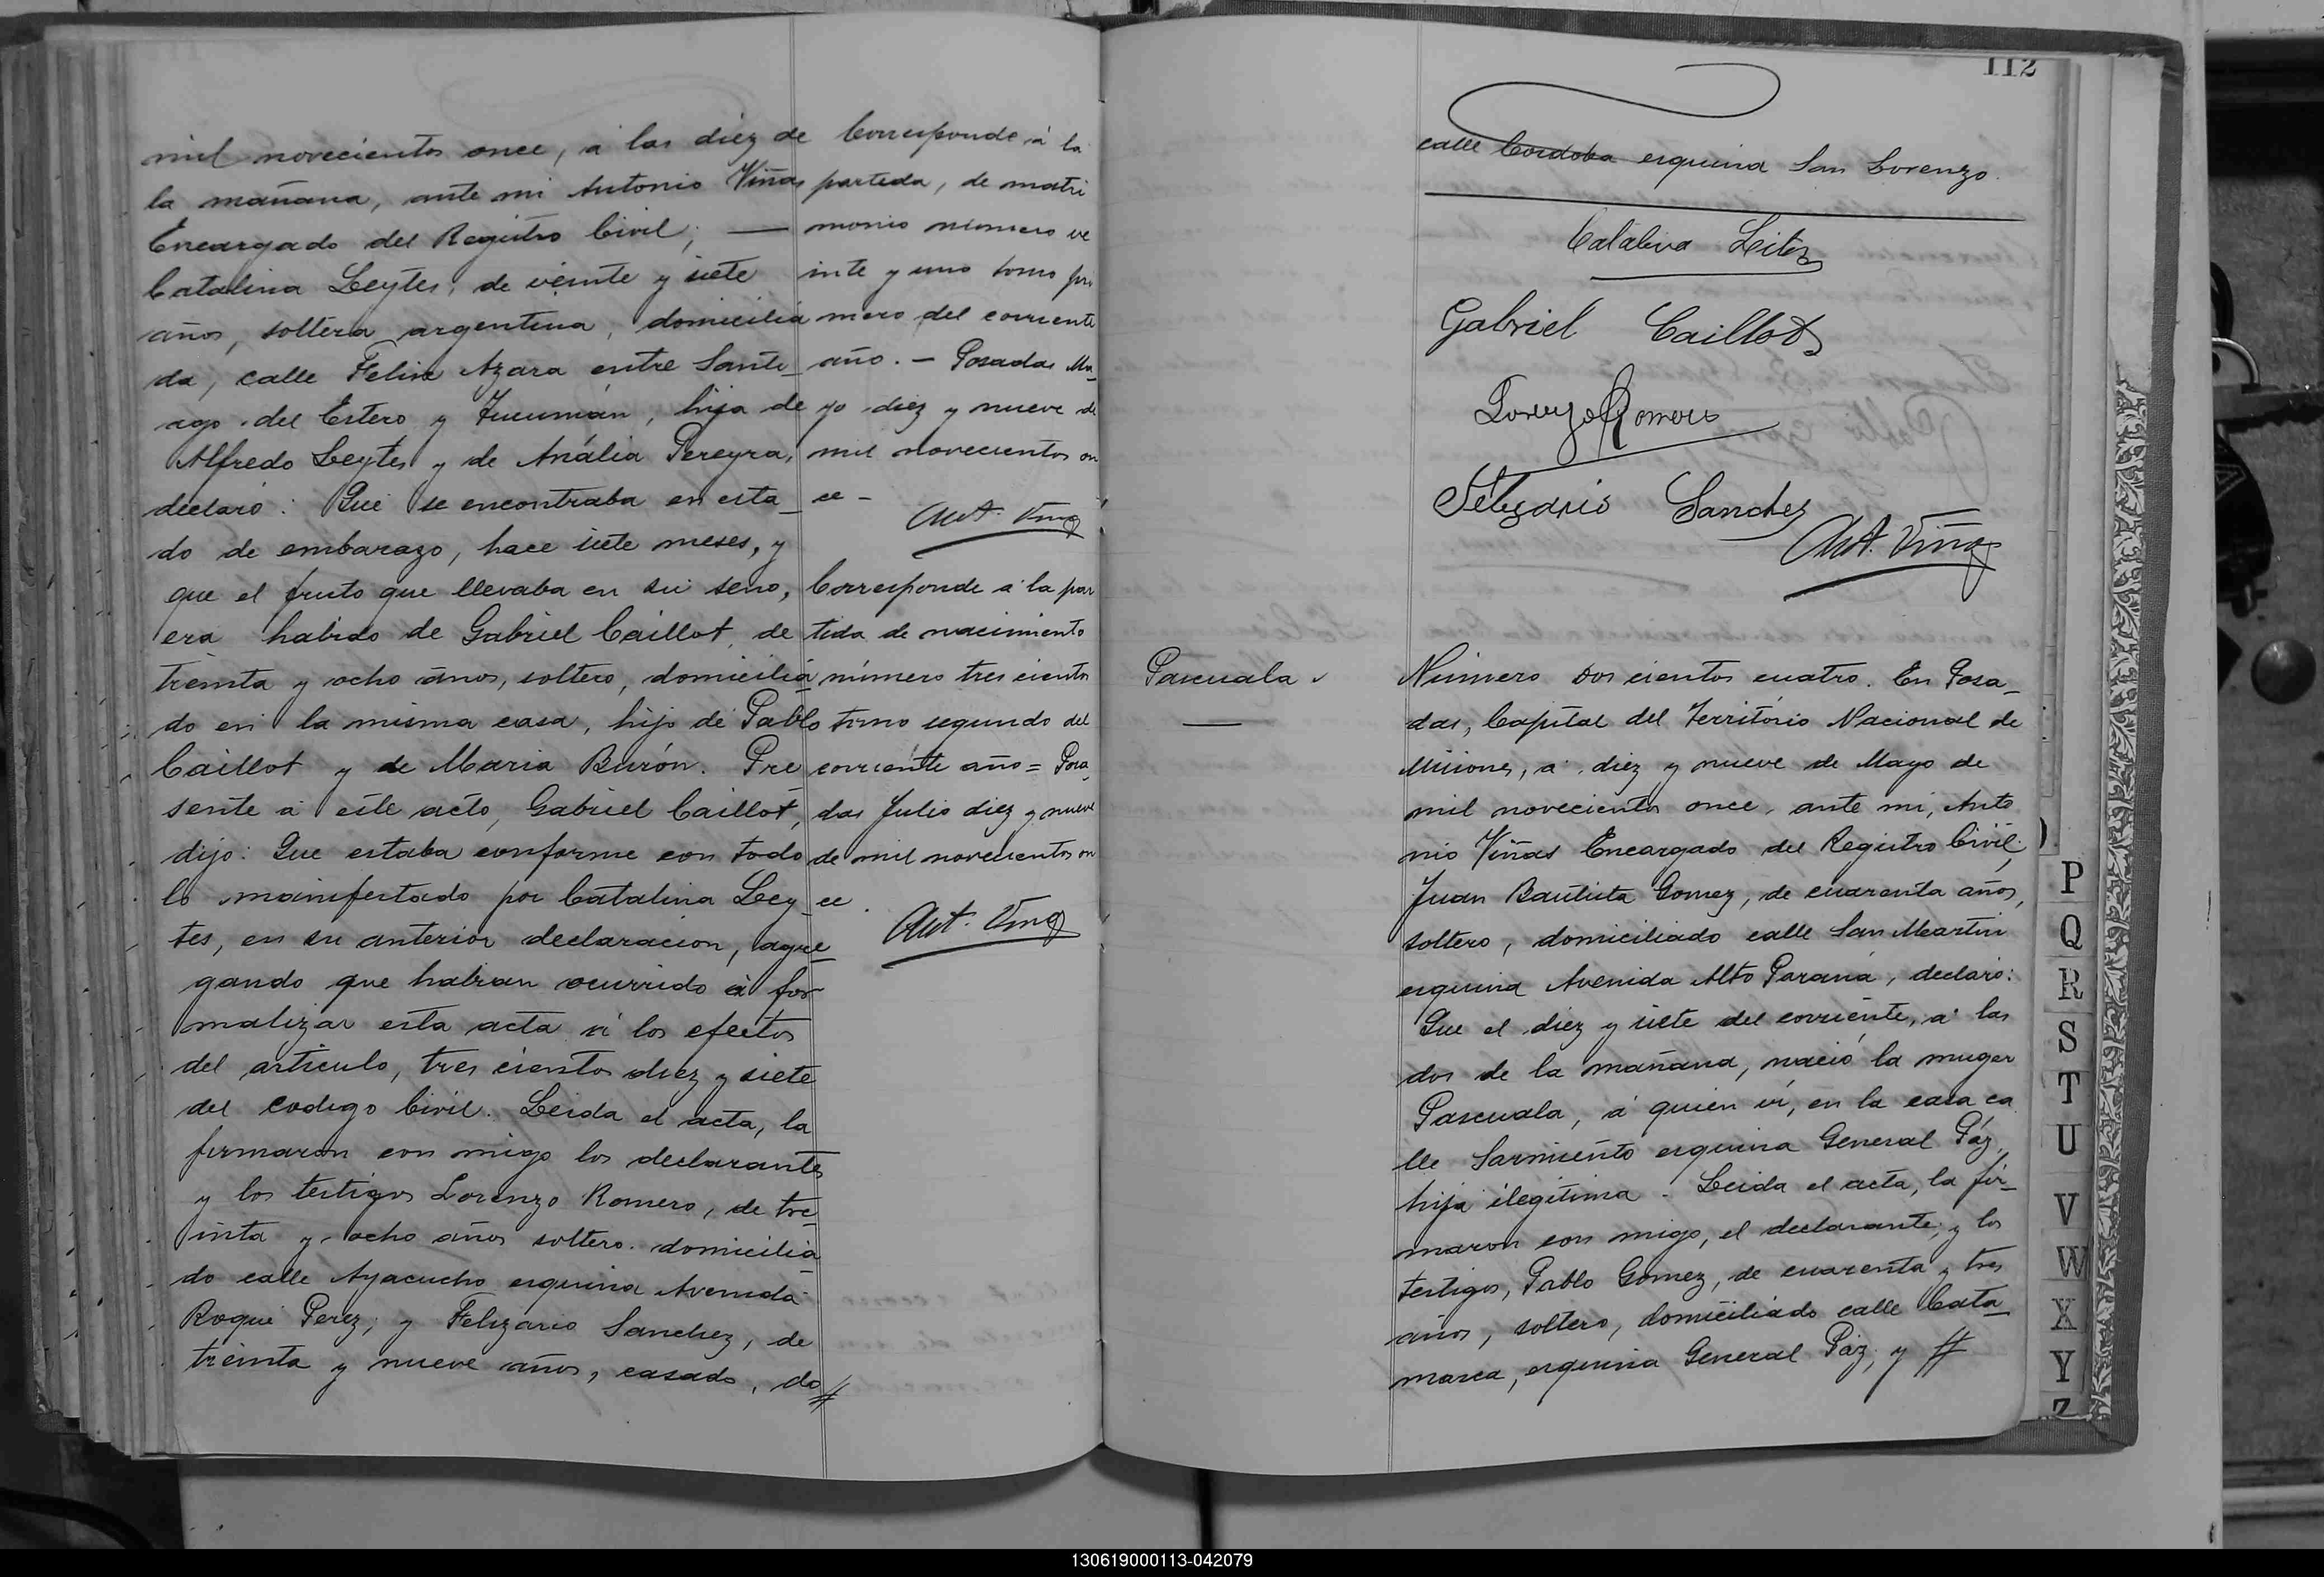 mil novecientos once, á las diez de
la mañana, ante mi Antonio Viñas
Encargado del Registro Civil; —
Catalina Leytes, de veinte y siete
años, soltera argentina, domicilia
da, calle Felix Azara entre Santi-
ago del Estero y Tucumán, hija de
Alfredo Leytes y de Anália Pereyra,
declaró: Que se encontraba en esta-
do de embarazo, hace siete meses, y
que el fruto que llevaba en su seno,
era habido de Gabriel Caillot, de
treinta y ocho años, soltero, domicilia
do en la misma casa, hijo de Pablo
Caillot y de Maria Burón. Pre
sente á este acto, Gabriel Caillot,
dijo: Que estaba conforme con todo
lo manifestado por Catalina Ley-
tes, en su anterior declaracion, agre-
gando que habian ocurrido á for
malizar esta acta á los efectos
del articulo, tres cientos diez y siete
del codigo Civil. Leida el acta, la
firmaron con migo los declarantes
y los testigos Lorenzo Romero, de tre-
inta y ocho años soltero. domicilia
do calle Ayacucho esquina Avenida
Roque Perez; y Felizario Sanchez, de
treinta y nueve años, casado, do//
Corresponde á la
partida, de matri
monio número ve
inte y uno tomo pri
mero del corriente
año. — Posadas Ma-
yo diez y nueve de
mil novecientos on
ce -
Ant. Viñas
Corresponde á la par
tida de nacimiento
número tres cientos
tomo segundo del
corriente año = Posa
das Julio diez y nueve
de mil novecientos on
ce
Ant. Viñas
112
calle Cordoba esquina San Lorenzo.
Catalina Leites
Gabriel Caillot
Lorenzo Romero
Felizario Sanchez
Ant. Viñas
Pascuala
Número dos cientos cuatro. En Posa-
das, Capital del Territorio Nacional de
Misiones, á diez y nueve de Mayo de
mil novecientos once, ante mi, Anto
nio Viñas Encargado del Registro Civil;
Juan Bautista Gomez, de cuarenta años,
soltero, domiciliado calle San Martin
esquina Avenida Alto Paraná, declaró:
Que el diez y siete del corriente, á las
dos de la mañana, nació la muger
Pascuala, á quien ví, en la casa ca
lle Sarmiento esquina General Páz,
hija ilegitima. Leida el acta, la fir-
maron con migo, el declarante; y los
testigos, Pablo Gomez, de cuarenta y tres
años, soltero, domiciliado calle Cata-
marca, esquina General Páz; y //
P
Q
R
S
T
U
V
W
X
Y
Z
130619000113-042079